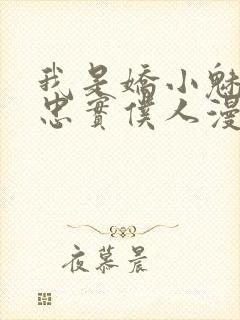 我是嬌小魅
忠實僕人漫
夜慕晨